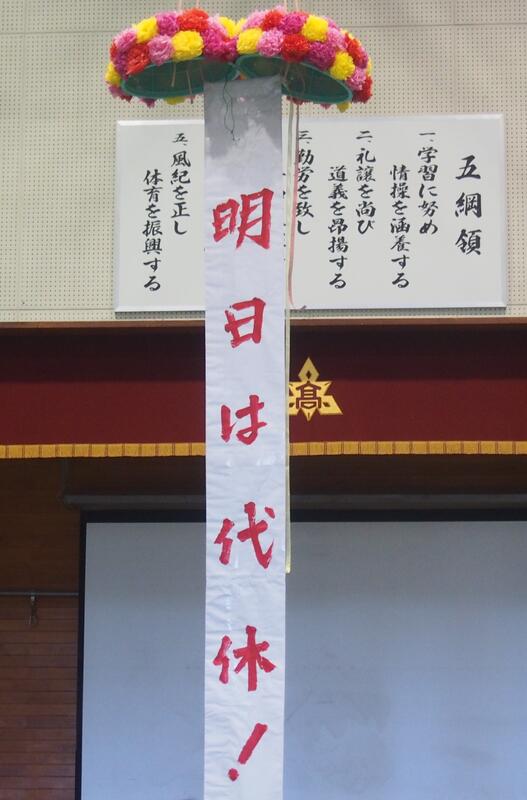 五綱領
一、学習に努め
情操を涵養する
二、礼譲を尚び
道義を昂揚する
三、勤労を致し
五、風紀を正し
体育を振興する
明日は代休!
高